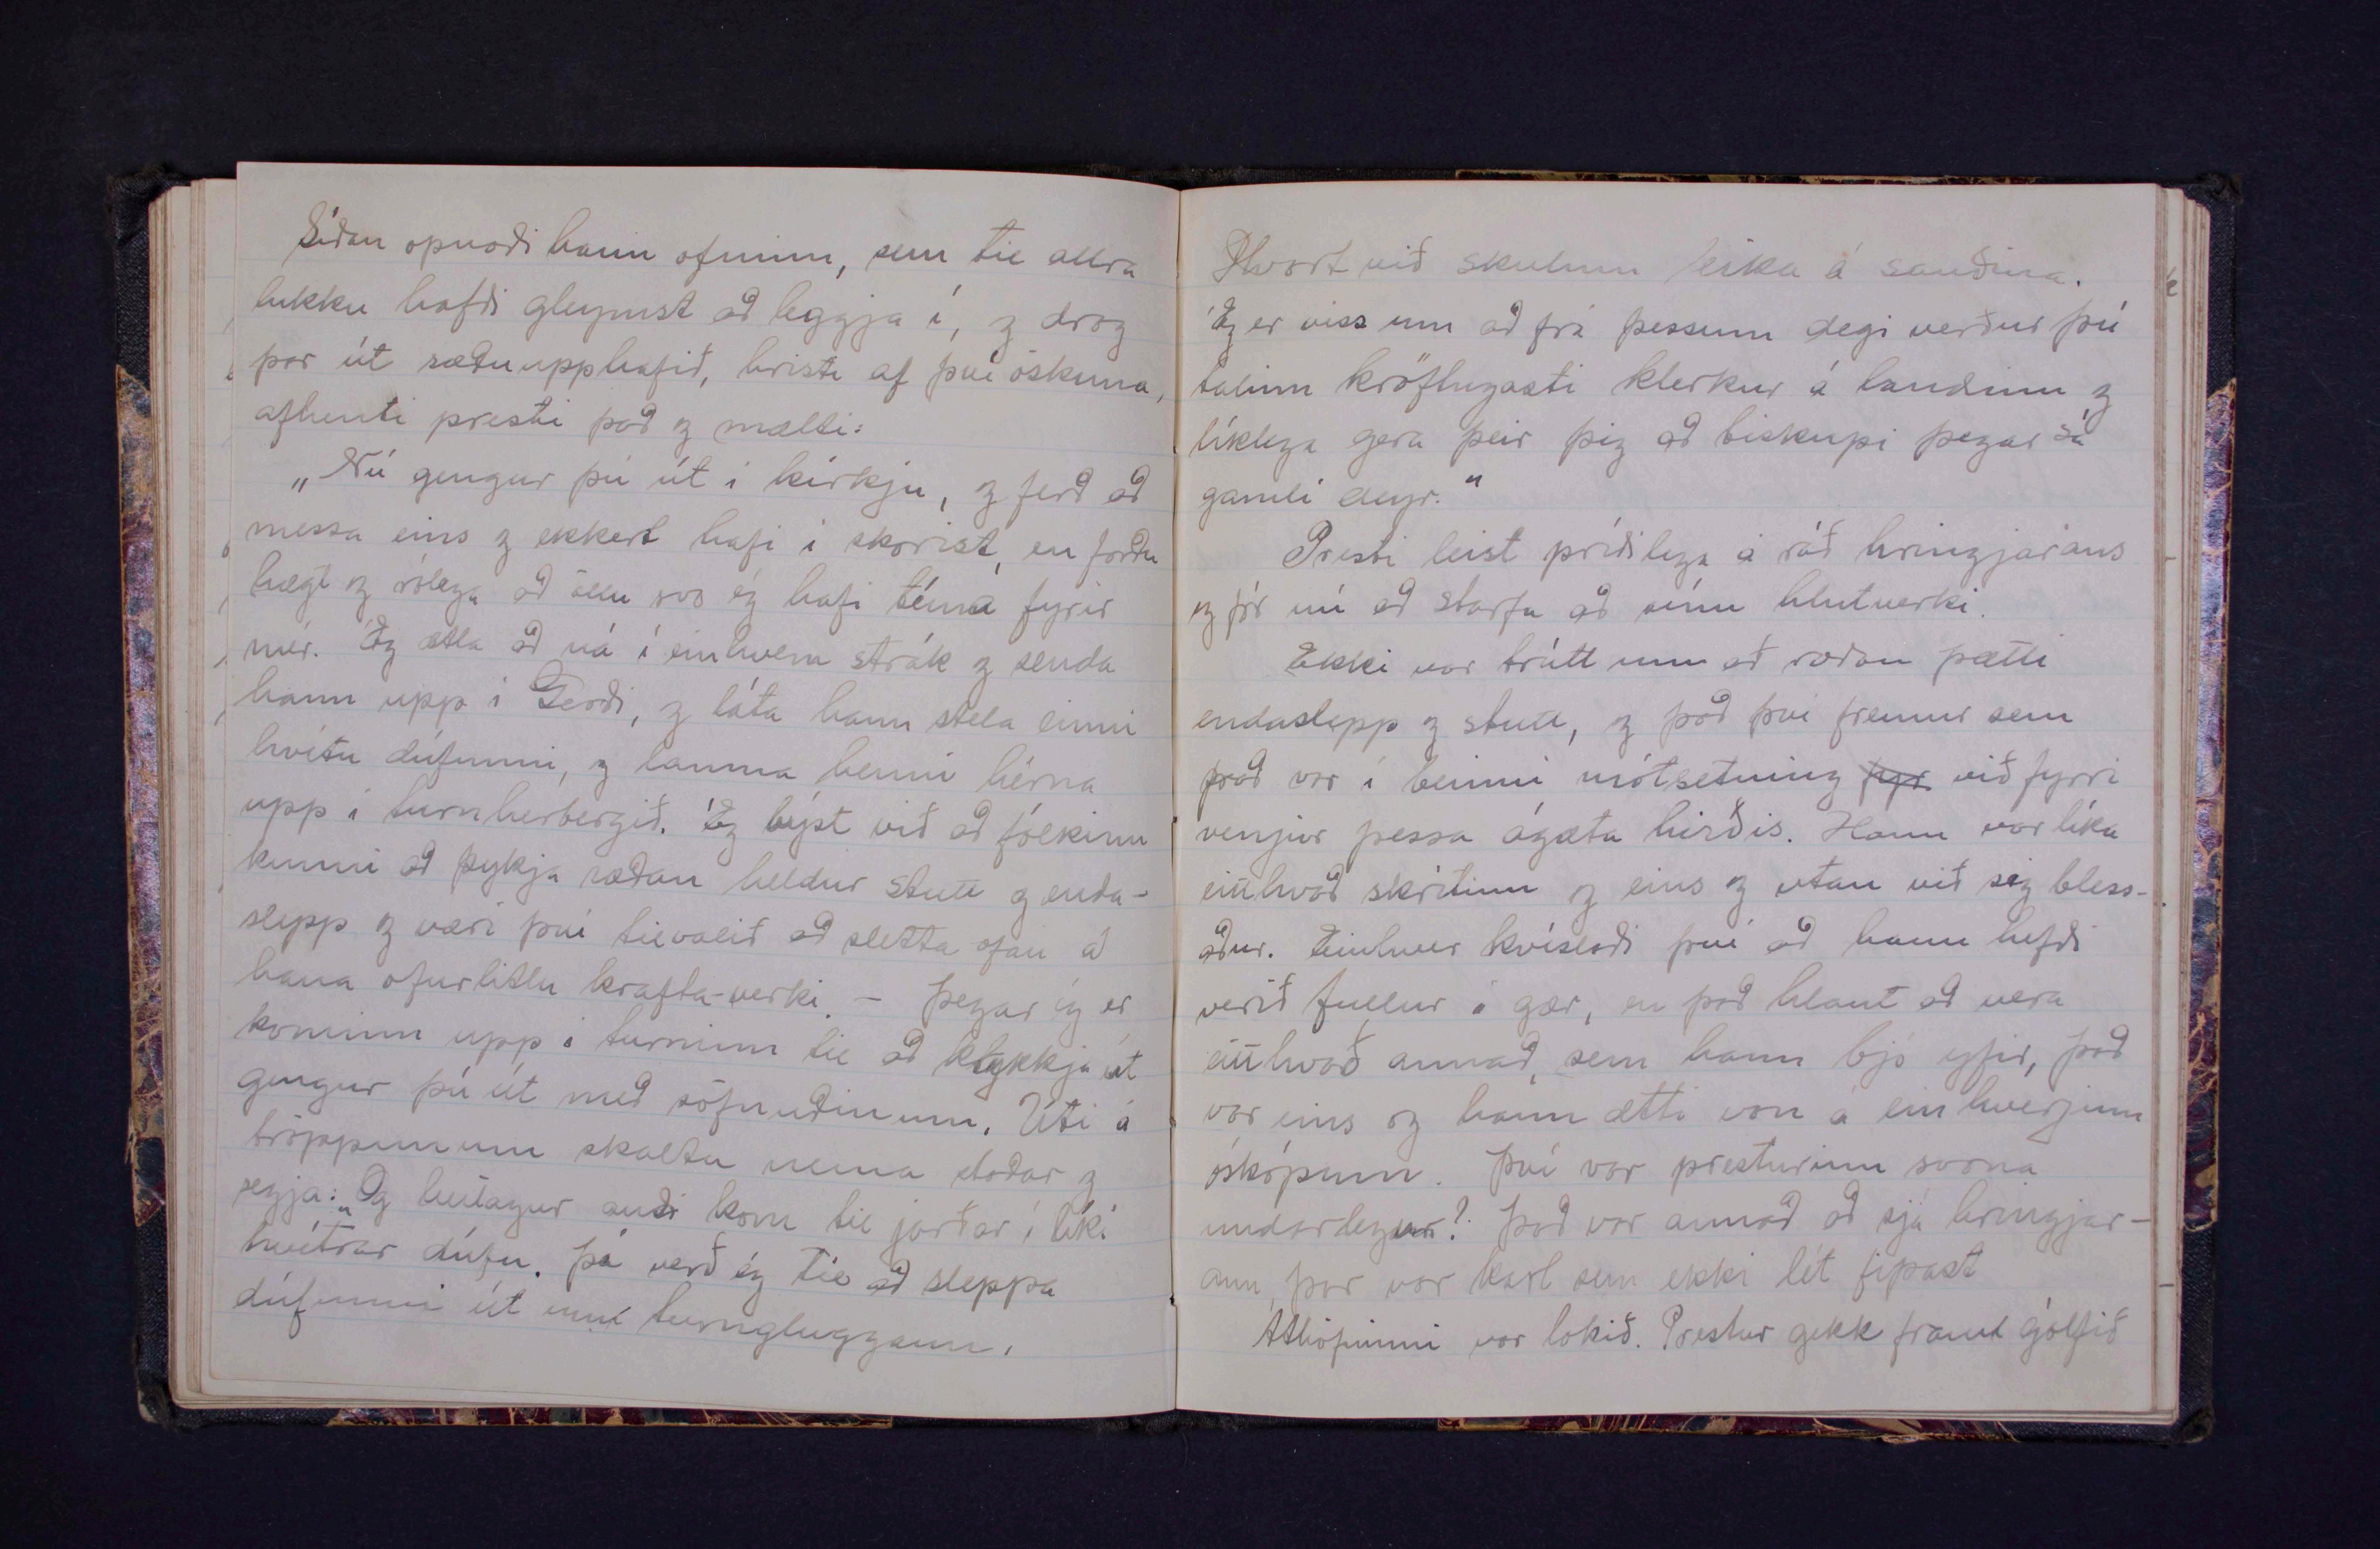 Síðan opnaði hann ofninn, sem til allra
lukku hafði gleymst að leggja í, og dróg
þar út ræðuupphafið, hristi af því öskuna,
afhenti presti það og mælti:
„Nú gengur þú út í kirkju, og ferð að
messa eins og ekkert hafi í skorist, en farðu
hægt og rólega að öllu svo ég hafi tíma fyrir
mér. Ég ætla að ná í einhvern strák og senda
hann upp í Gerði, og láta hann stela einni
hvítu dúfunni, og lauma henni hérna
upp í turnherbergið. Ég býst við að fólkinu
kunni að þykja ræðan heldur stutt og enda-
slepp og væri því tilvalið að sletta ofan á
hana ofurlitlu krafta-verki. – Þegar ég er
kominn upp í turninn til að klykkja út
gengur þú út með söfnuðinum. Úti á
tröppunum skaltu nema staðar og
segja: „Og heilagur andi kom til jarðar í líki
hvítrar dúfu. Þá verð ég til að sleppa
dúfunni út um turngluggann.
Hvort við skulum leika á sauðina.
Ég er viss um að frá þessum degi verður þú
talinn kröftugasti klerkur á landinu og
líklega gera þeir þig að biskupi þegar sá
gamli deyr."
Presti leist prýðilega á ráð hringjarans
og fór nú að starfa að sínu hlutverki.
Ekki var trútt um að ræðan þætti
endaslepp og stutt, og það því fremur sem
það var í beinni mótsetning fyr við fyrri
venjur þessa ágæta hirðis. Hann var líka
eitthvað skrítinn og eins og utan við sig bless-
aður. Einhver hvíslaði því að hann hefði
verið fullur í gær, en það hlaut að vera
eitthvað annað, sem hann bjó yfir, það
var eins og hann ætti von á einhverjum
ósköpum. Því var presturinn svona
undarlegur? Það var annað að sjá hringjar-
ann, þar var karl sem ekki lét fipast
Athöfninni var lokið. Prestur gekk framt gólfið